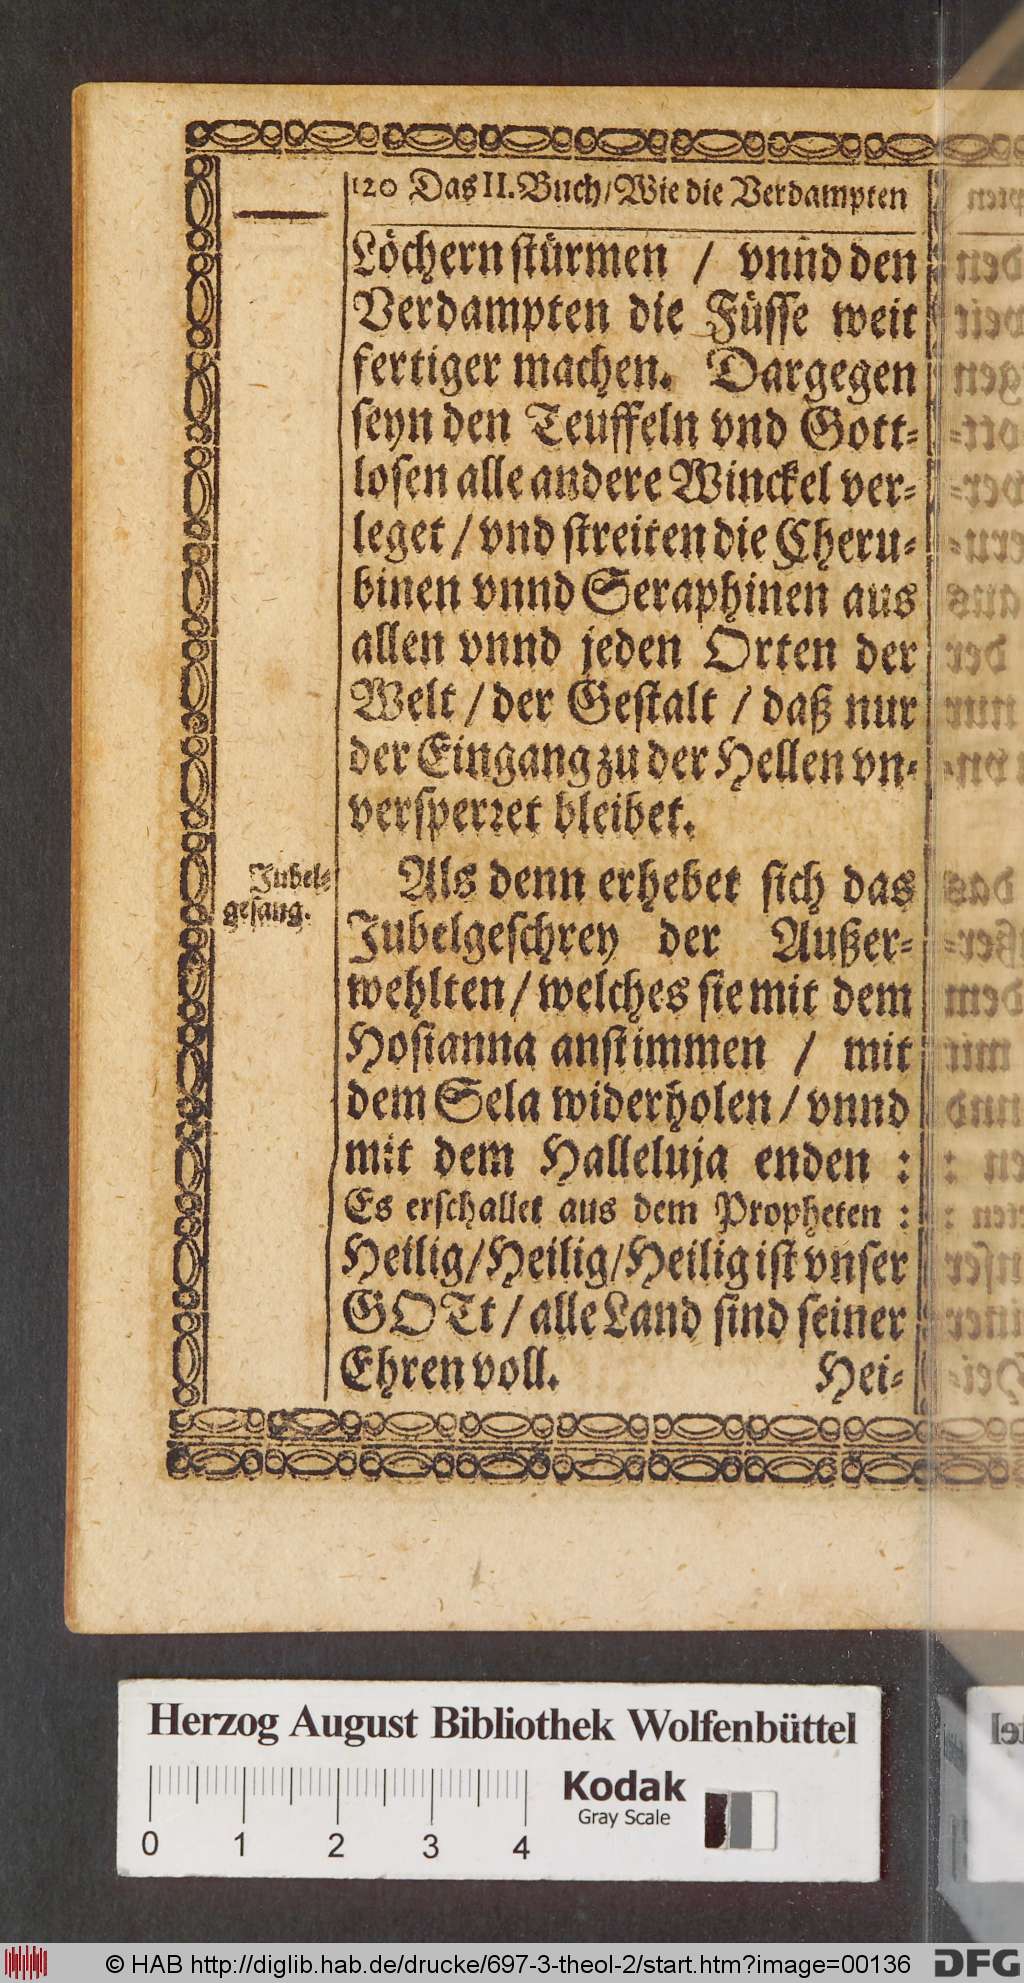 120 Das II. Buch/ Wie die Verdampten
Löchern stürmen / vnnd den
Verdampten die Füsse weit
fertiger machen. Dargegen
seyn den Teuffeln vnd Gott-
losen alle andere Winckel ver-
leget / vnd streiten die Cheru-
binen vnnd Seraphinen aus
allen vnnd jeden Orten der
Welt / der Gestalt / daß nur
der Eingang zu der Hellen vn-
versperret bleibet.
Jubel-
gesang.
Als denn erhebet sich das
Jubelgeschrey der Außer-
wehlten / welches sie mit dem
Hosianna anstimmen / mit
dem Sela widerholen / vnnd
mit dem Halleluja enden :
Es erschallet aus dem Propheten :
Heilig/Heilig/Heilig ist vnser
GOTt / alle Land sind seiner
Ehren voll.
Hei-
Herzog August Bibliothek Wolfenbüttel
Kodak
Gray Scale
0 1 2 3 4
© HAB http://diglib.hab.de/drucke/697-3-theol-2/start.htm?image=00136
DFG